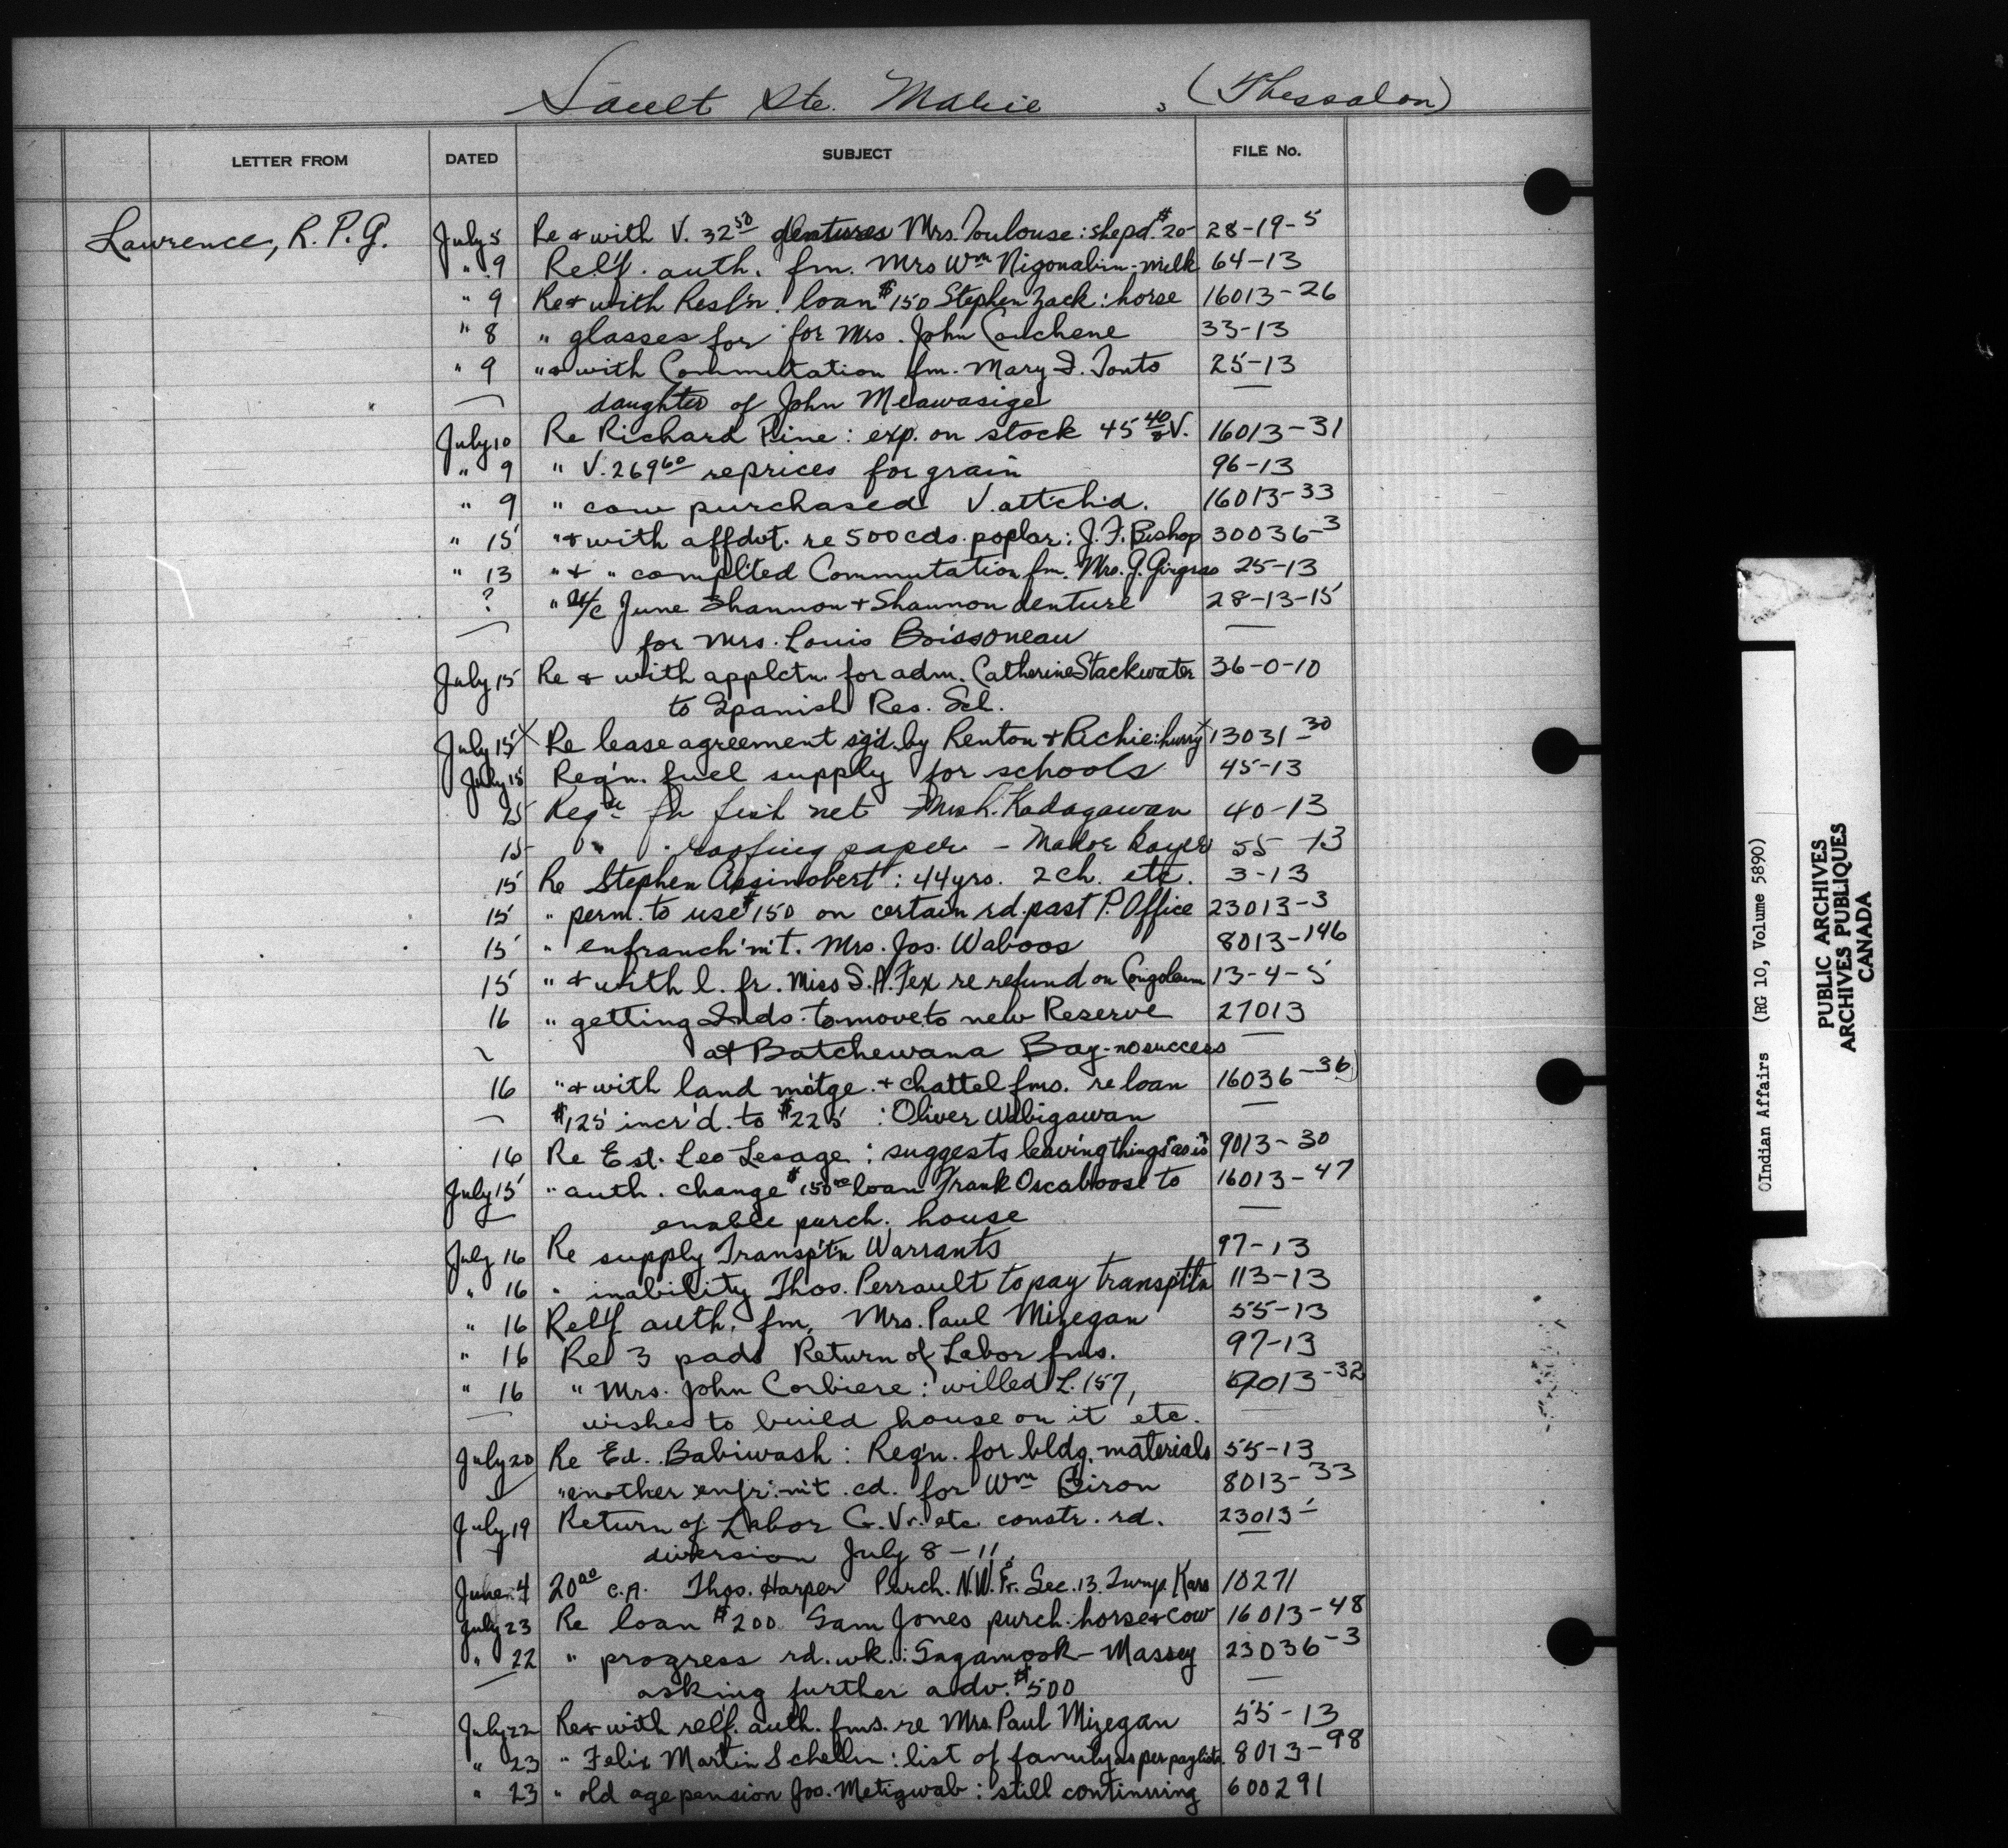 Sault Ste. Marie, (Thessalon)
LETTER FROM DATED SUBJECT FILE No.
Lawrence, R. P. G. July 5 Re & with V. 32 50 dentures Mrs. Toulouse: shepd. $20- 28-19-5
" 9 Relf. auth. fm. Mrs Wm Nigonabin-milk 64-13
" 9 Re & with Resl'n. loan $150 Stephen Zack: horse 16013-26
" 8 " glasses for for Mrs. John Cauchene 33-13
" 9 " & with Commutation fm. Mary I. Tonts 25-13
daughter of John Meawasige —
July 10 Re Richard Pine: exp. on stock 45 40 & V. 16013-31
" 9 " V. 269 60 re prices for grain 96-13
" 9 " cow purchased V. attch'd. 16013-33
" 15 " & with affdvt. re 500 cds. poplar: J. F. Bishop 30036-3
" 13 " & " complted Commutation fm. Mrs. J. Gingras 25-13
? " a/c June Shannon & Shannon denture 28-13-15
for Mrs. Louis Boissoneau —
July 15 Re & with applctn. for adm. Catherine Stackwater 36-0-10
to Spanish Res. Sch.
July 15 x Re lease agreement sg'd. by Renton & Richie: hurry x 13031-30
July 15 Req'n. fuel supply for schools 45-13
15 Reqn fr fish net Kadagawan 40-13
15 " roofing paper - 55-13
15 Re Stephen Assinobert: 44 yrs. 2 ch. etc. 3-13
15 " perm. to use $150 on certain rd. past P. Office 23013-3
15 " enfranch'm't. Mrs. Jos. Waboos 8013-146
15 " & with l. fr. Miss S. A. Fex re refund on Congoleum 13-4-5
16 " getting Inds. to move to new Reserve 27013
at Batchewana Bay - no success —
16 " & with land m'tge. & chattel fms. re loan 16036-36
— $125 incr'd. to $225 : Oliver Wabigawan —
16 Re Est. Leo Lesage: suggests leaving things "as is" 9013-30
July 15 " auth. change $150 00 loan Frank Oscaboose to 16013-47
enable purch. house —
July 16 Re supply Transp't'n Warrants 97-13
" 16 " inability Thos. Perrault to pay transpt'tn 113-13
" 16 Relf auth. fm. Mrs. Paul Mizegan 55-13
" 16 Re 3 pads Return of Labor fms. 97-13
" 16 " Mrs. John Corbiere: willed L. 157, 9013-32
wishes to build house on it etc. —
July 20 Re Ed. Babiwash: Req'n. for bldg. materials 55-13
" another enfr.'m't. cd. for Wm Biron 8013-33
July 19 Return of Labor G. Vr. etc constr. rd. 23013-1
diversion July 8-11.
June 4 20 00 C.A. Thos. Harper Purch. N.W. Fr. Sec. 13. Twnp. Kars 10271
July 23 Re loan $200 Sam Jones purch. horse & cow 16013-48
" 22 " progress rd. wk.: Sagamook - Massey 23036-3
— asking further adv. $500 —
July 22 Re & with relf. auth. fms. re Mrs Paul Mizegan 55-13
" 23 " Felix Martin Schellin: list of family as per paylists. 8013-98
" 23 " old age pension Jos. Metigwab: still continuing 600291
©Indian Affairs (RG 10, Volume 5890)
PUBLIC ARCHIVES
ARCHIVES PUBLIQUES
CANADA